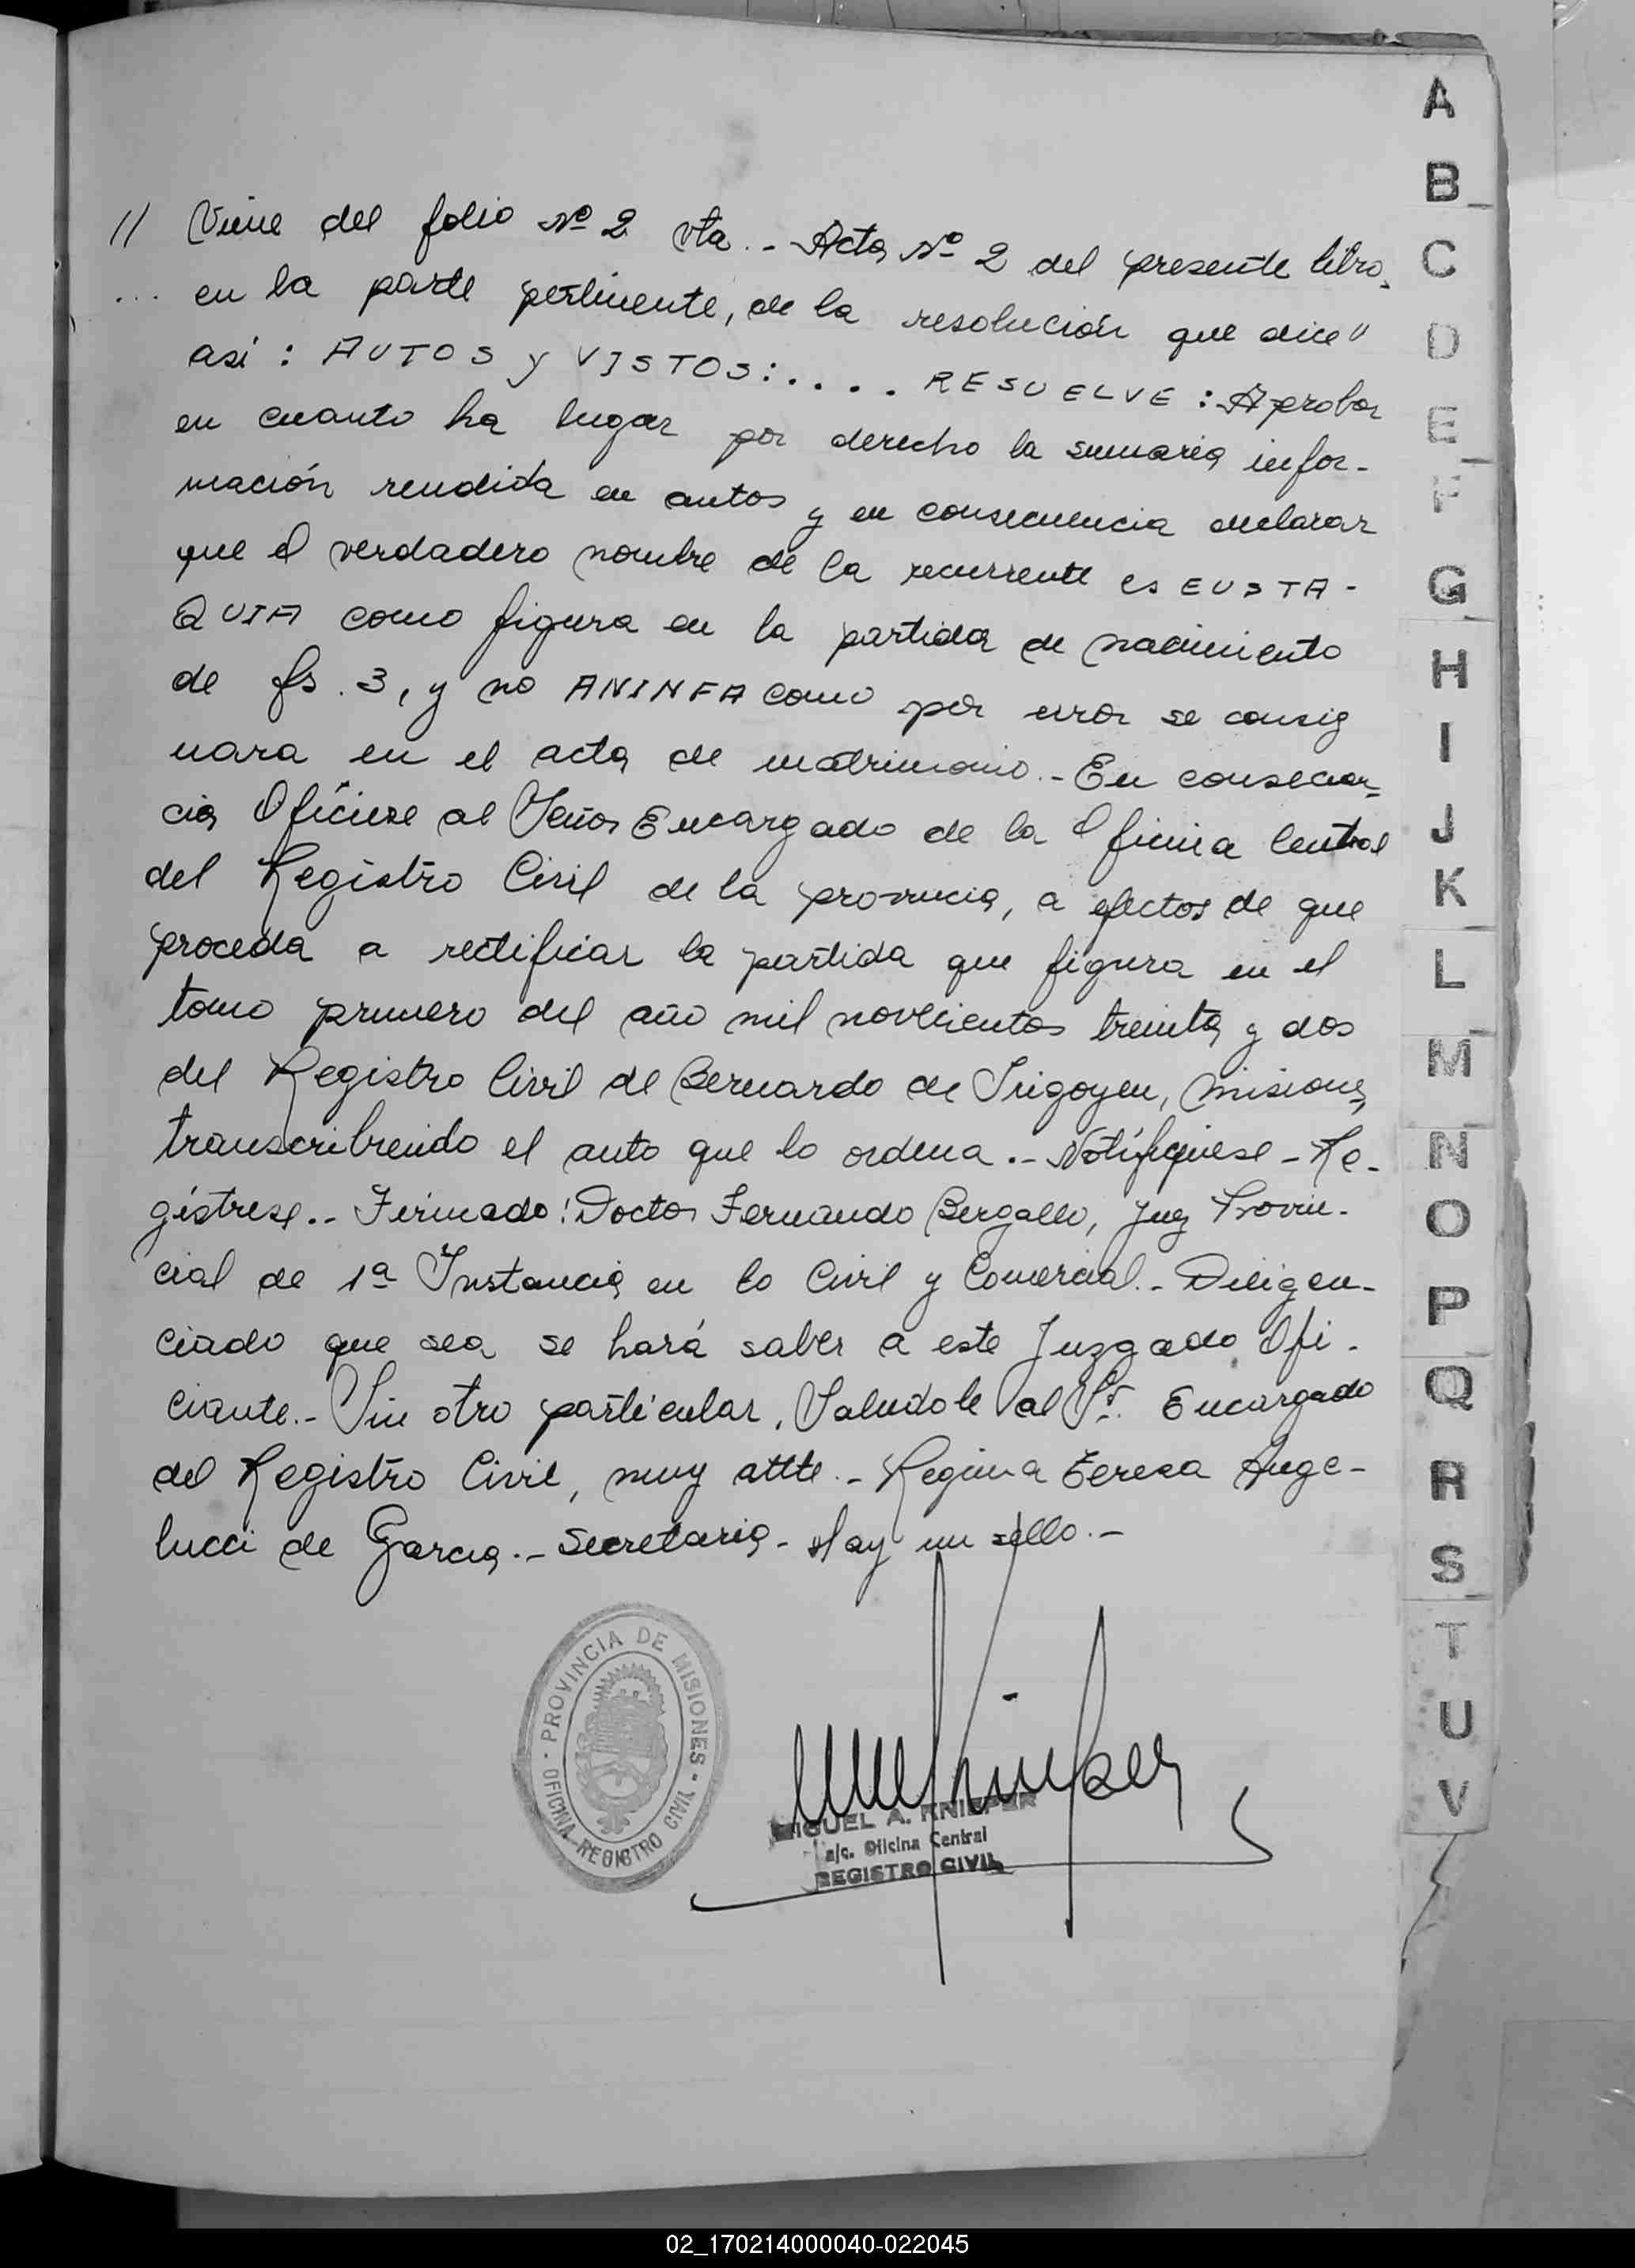 // Viene del folio Nº 2 vta.- Acta Nº 2 del presente libro.
... en la parte pertinente, de la resolución que dice"
así: AUTOS y VISTOS:.... RESUELVE: Aprobar
en cuanto ha lugar por derecho la sumaria infor-
mación rendida en autos y en consecuencia declarar
que el verdadero nombre de la recurrente es EUSTA-
QUIA como figura en la partida de nacimiento
de fs. 3, y no ANINFA como por error se consig
nara en el acta de matrimonio.- En consecuen=
cia Ofíciese al Señor Encargado de la Oficina Central
del Registro Civil de la provincia, a efectos de que
proceda a rectificar la partida que figura en el
tomo primero del año mil novecientos treinta y dos
del Registro Civil de Bernardo de Irigoyen, Misiones,
transcribiendo el auto que lo ordena.- Notifíquese - Re-
gístrese.- Firmado: Doctor Fernando Bergallo, Juez Provin-
cial de 1ª Instancia en lo Civil y Comercial.- Diligen-
ciado que sea se hará saber a este Juzgado Ofi-
ciante.- Sin otro particular, Saludole al Sr. Encargado
del Registro Civil, muy attte.- Regina Teresa Ange-
lucci de Garcia.- Secretaria - Hay un sello.-
PROVINCIA DE MISIONES - OFICINA REGISTRO CIVIL -
MIGUEL A. KNIEPER
a/c. Oficina Central
REGISTRO CIVIL
A
B
C
D
E
F
G
H
I
J
K
L
M
N
O
P
Q
R
S
T
U
V
02_170214000040-022045